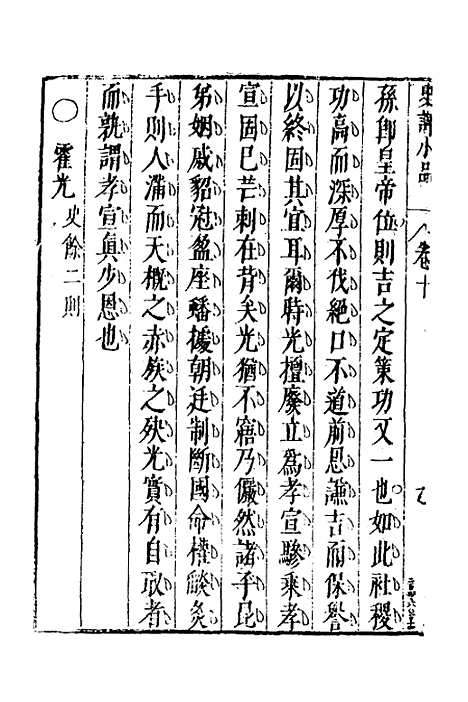 小品 卷十
孫卽皇帝位則吉之定策功又一也如此社稷
功高而深厚不伐絕口不道前恩謙吉而保譽
以終固其宜耳爾時光擅廢立爲孝宣驂乘孝
宣固已芒刺在背矣光猶不寤乃儼然諸子昆
弟姻戚貂冠盈座蟠據朝廷制斷國命權燄灸
手則人滿而天概之赤族之殃光實有自取者
而孰謂孝宣眞少恩也
○霍光 史餘二則